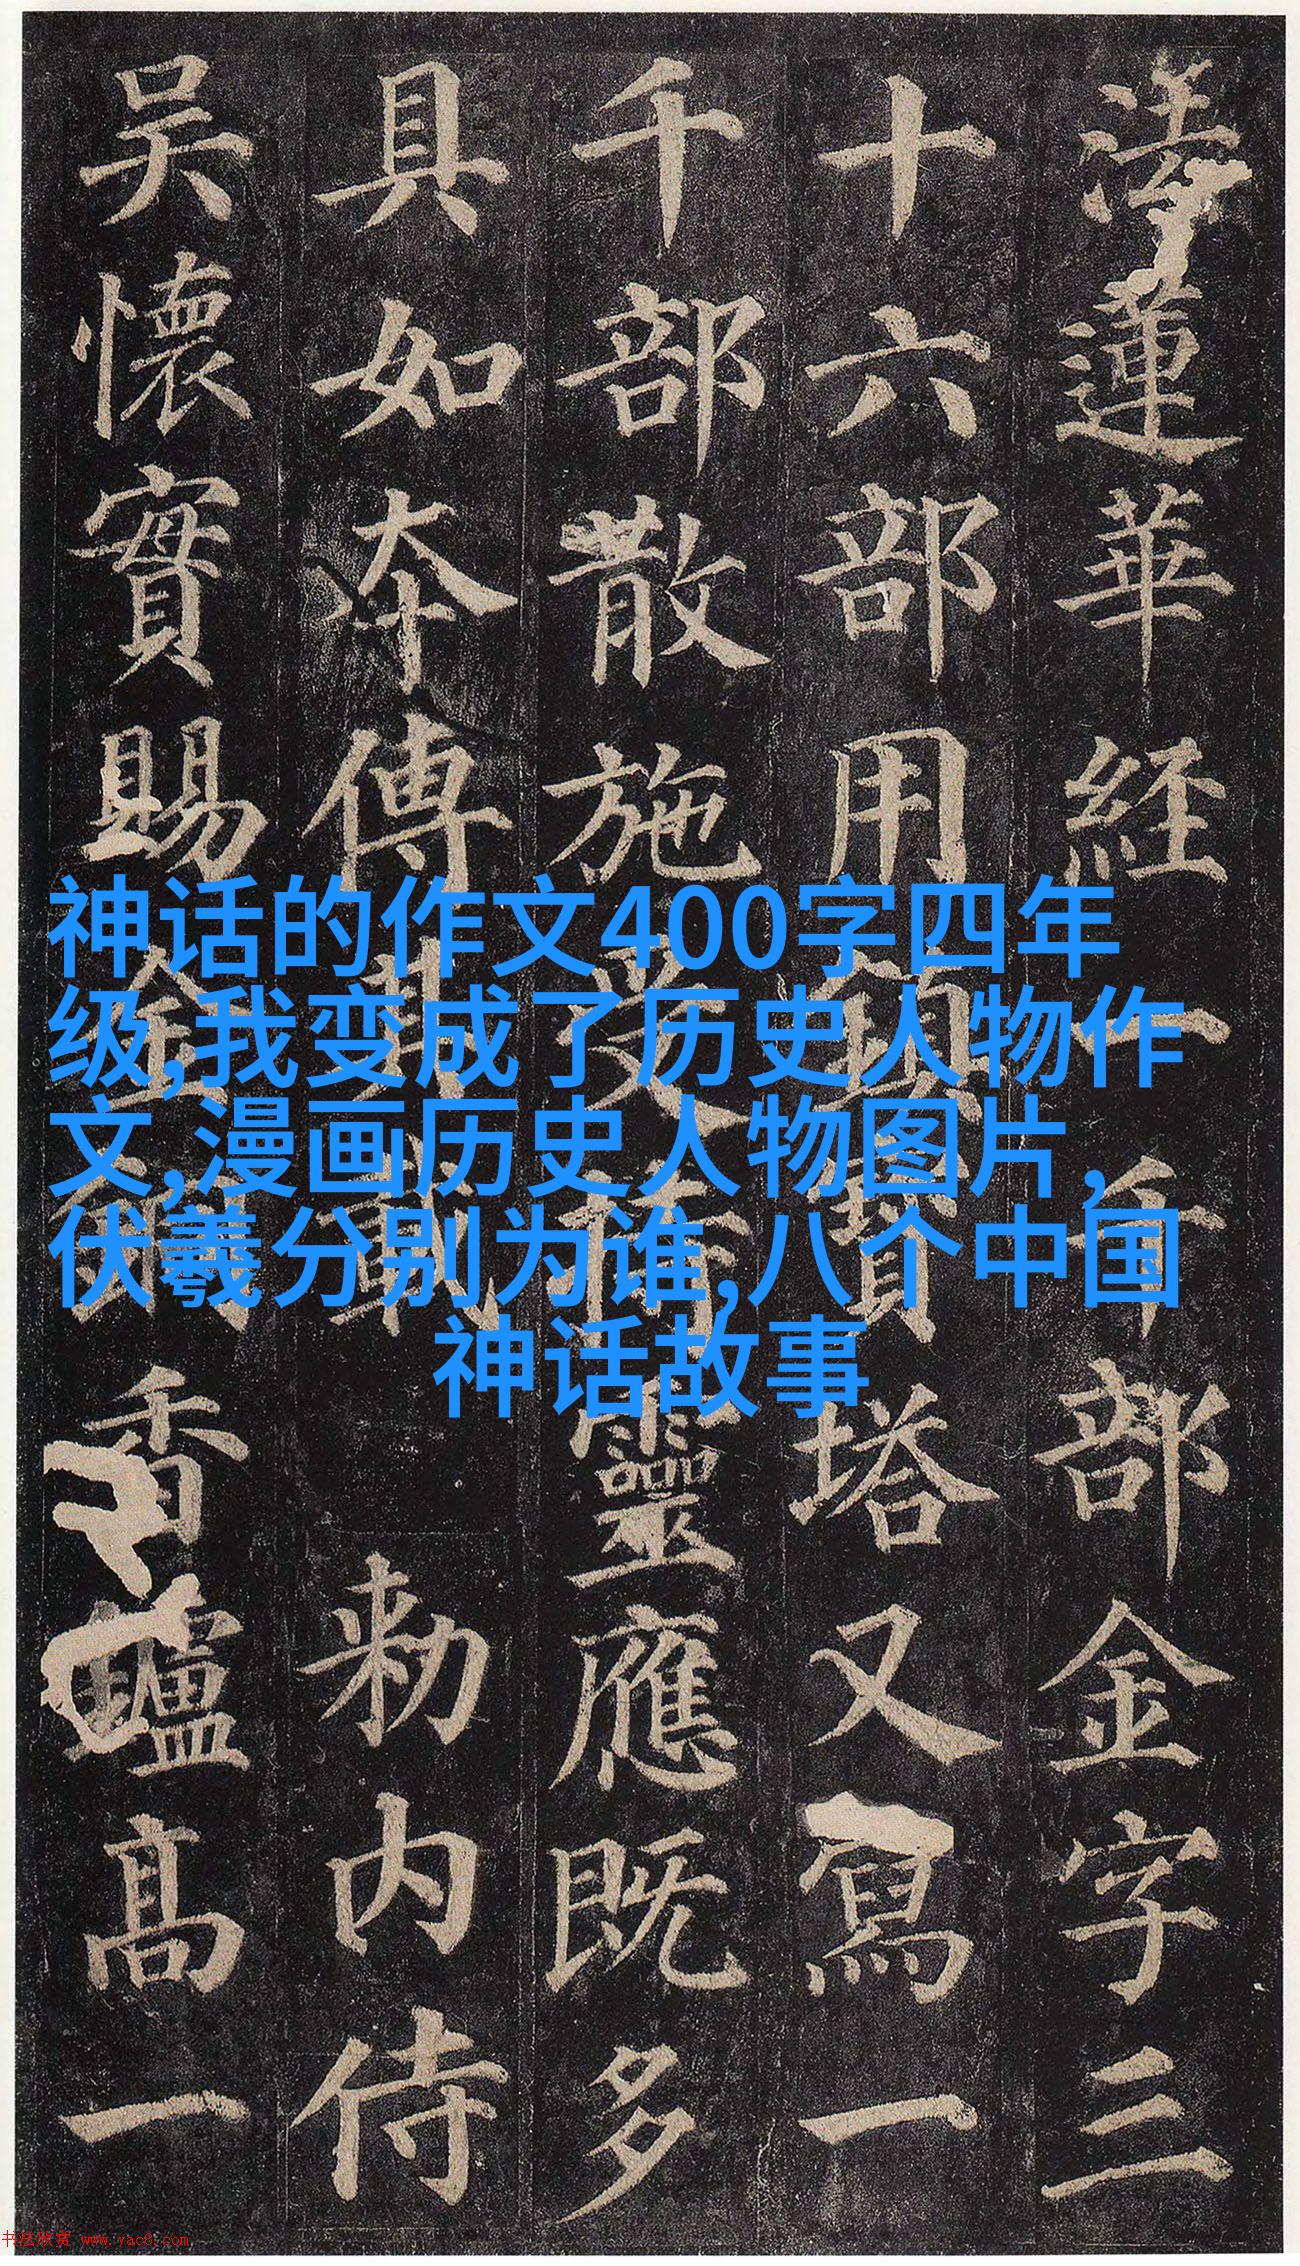 法蓮華經一千部金字三
十六部用鎮寶塔又寫一
千部散施受持靈應既多
具如本傳其載勑内侍
吳懷實賜金銅香爐高一
神话的作文400字四年
级,我变成了历史人物作
文,漫画历史人物图片,
伏羲分别为谁,八个中国
神话故事
书法欣赏 www.yac8.com